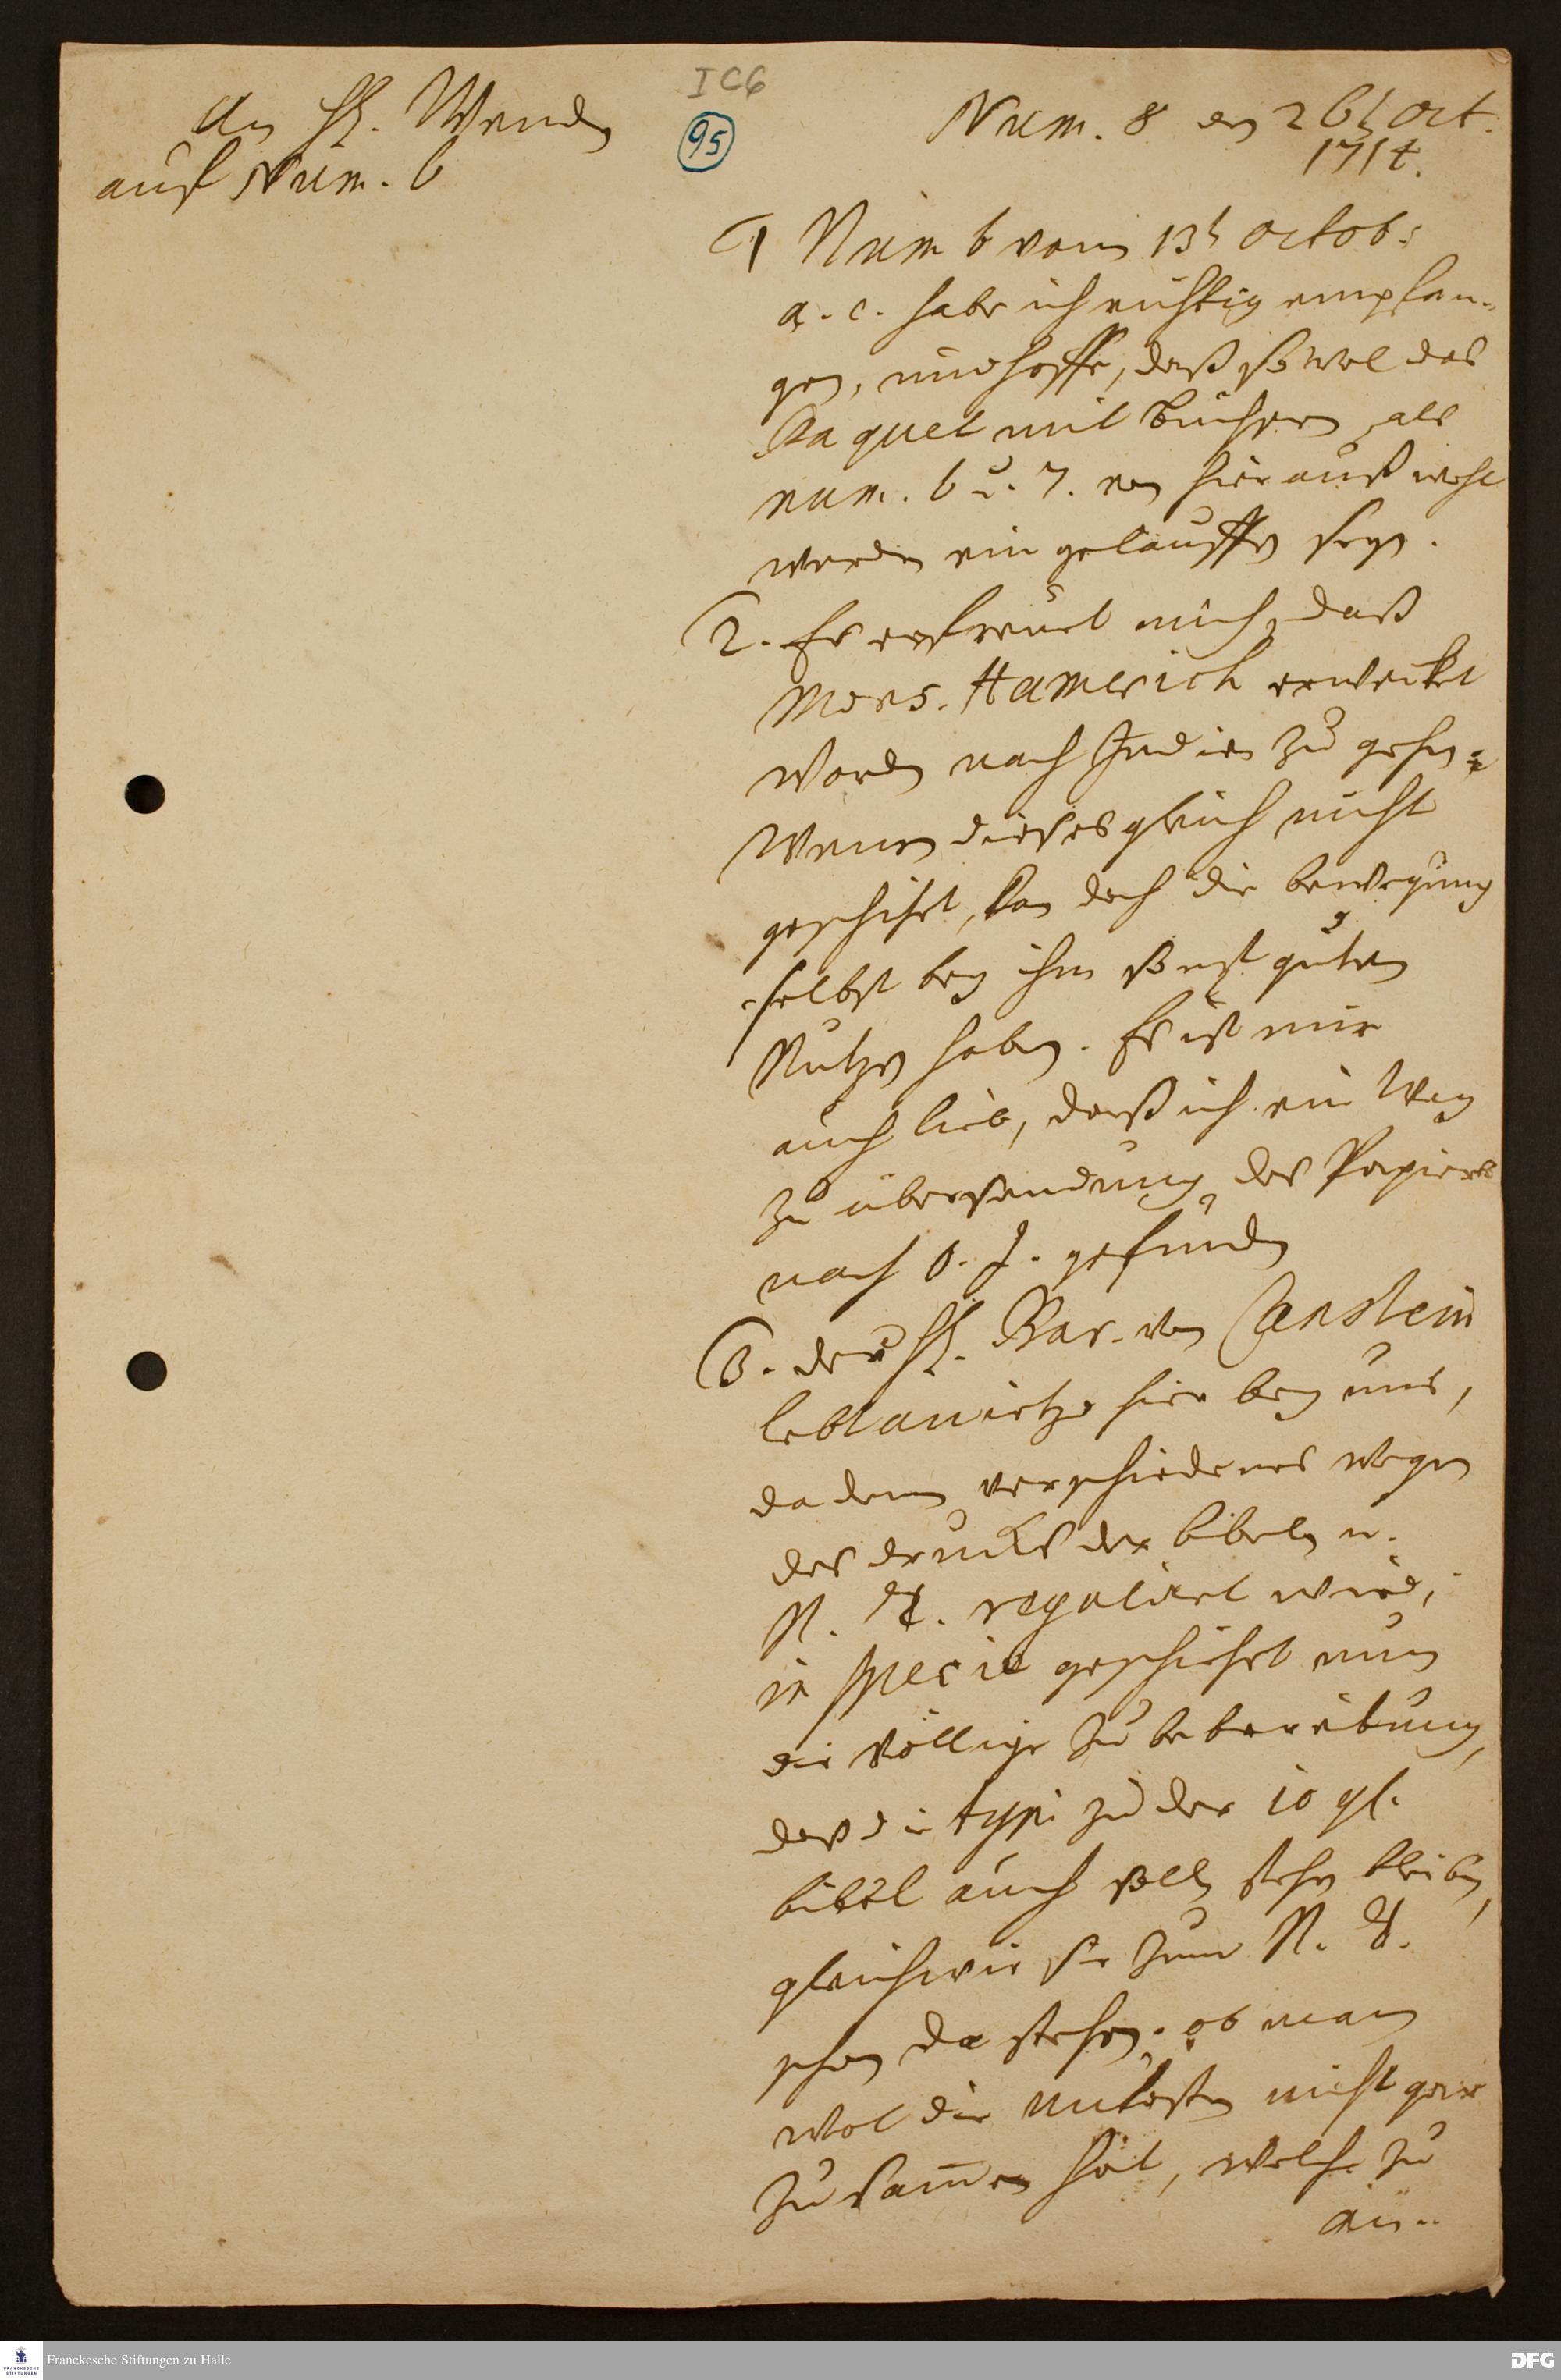 I C 6
95
an H. Wendn
auf Num. 6
Num. 8 den 26t Oct.
1714.
1 Num 6 vom 13t Octob:
a. c. habe ich richtig empfan-
gen, und hoffe, daß so wol das
Paquet mit Büchern, als
num. 6 u. 7. von hierauß wohl
werden ein gelauffen seyn.
2. Es erfreuet mich, daß
Mons. Hamerich erwecket
worden nach Indien zu gehen.
Wenn dieses gleich nicht
geschihet, kan doch die bewegung
selbst bey ihm sonst guten
Nutzen haben. Es ist mir
auch lieb, daß ich ein Weg
zu übersendung des Papiers
nach O. J. gefunden
3. der H. Bar. von Canstein
lebt anietzo hier bey uns,
da denn verschiedenes wegen
des drucks der bibeln u.
N. T. reguliret wird,
in specie geschiehet nun
die völlige zubereitung,
daß die typi zu der 10 gl.
bibel auch solln stehen bleiben,
gleichwie sie zum N. T.
schon da stehen. ob man
wol die unkosten nicht gar
zusam̄en hat, welche zu
an-
Franckesche Stiftungen zu Halle
DFG